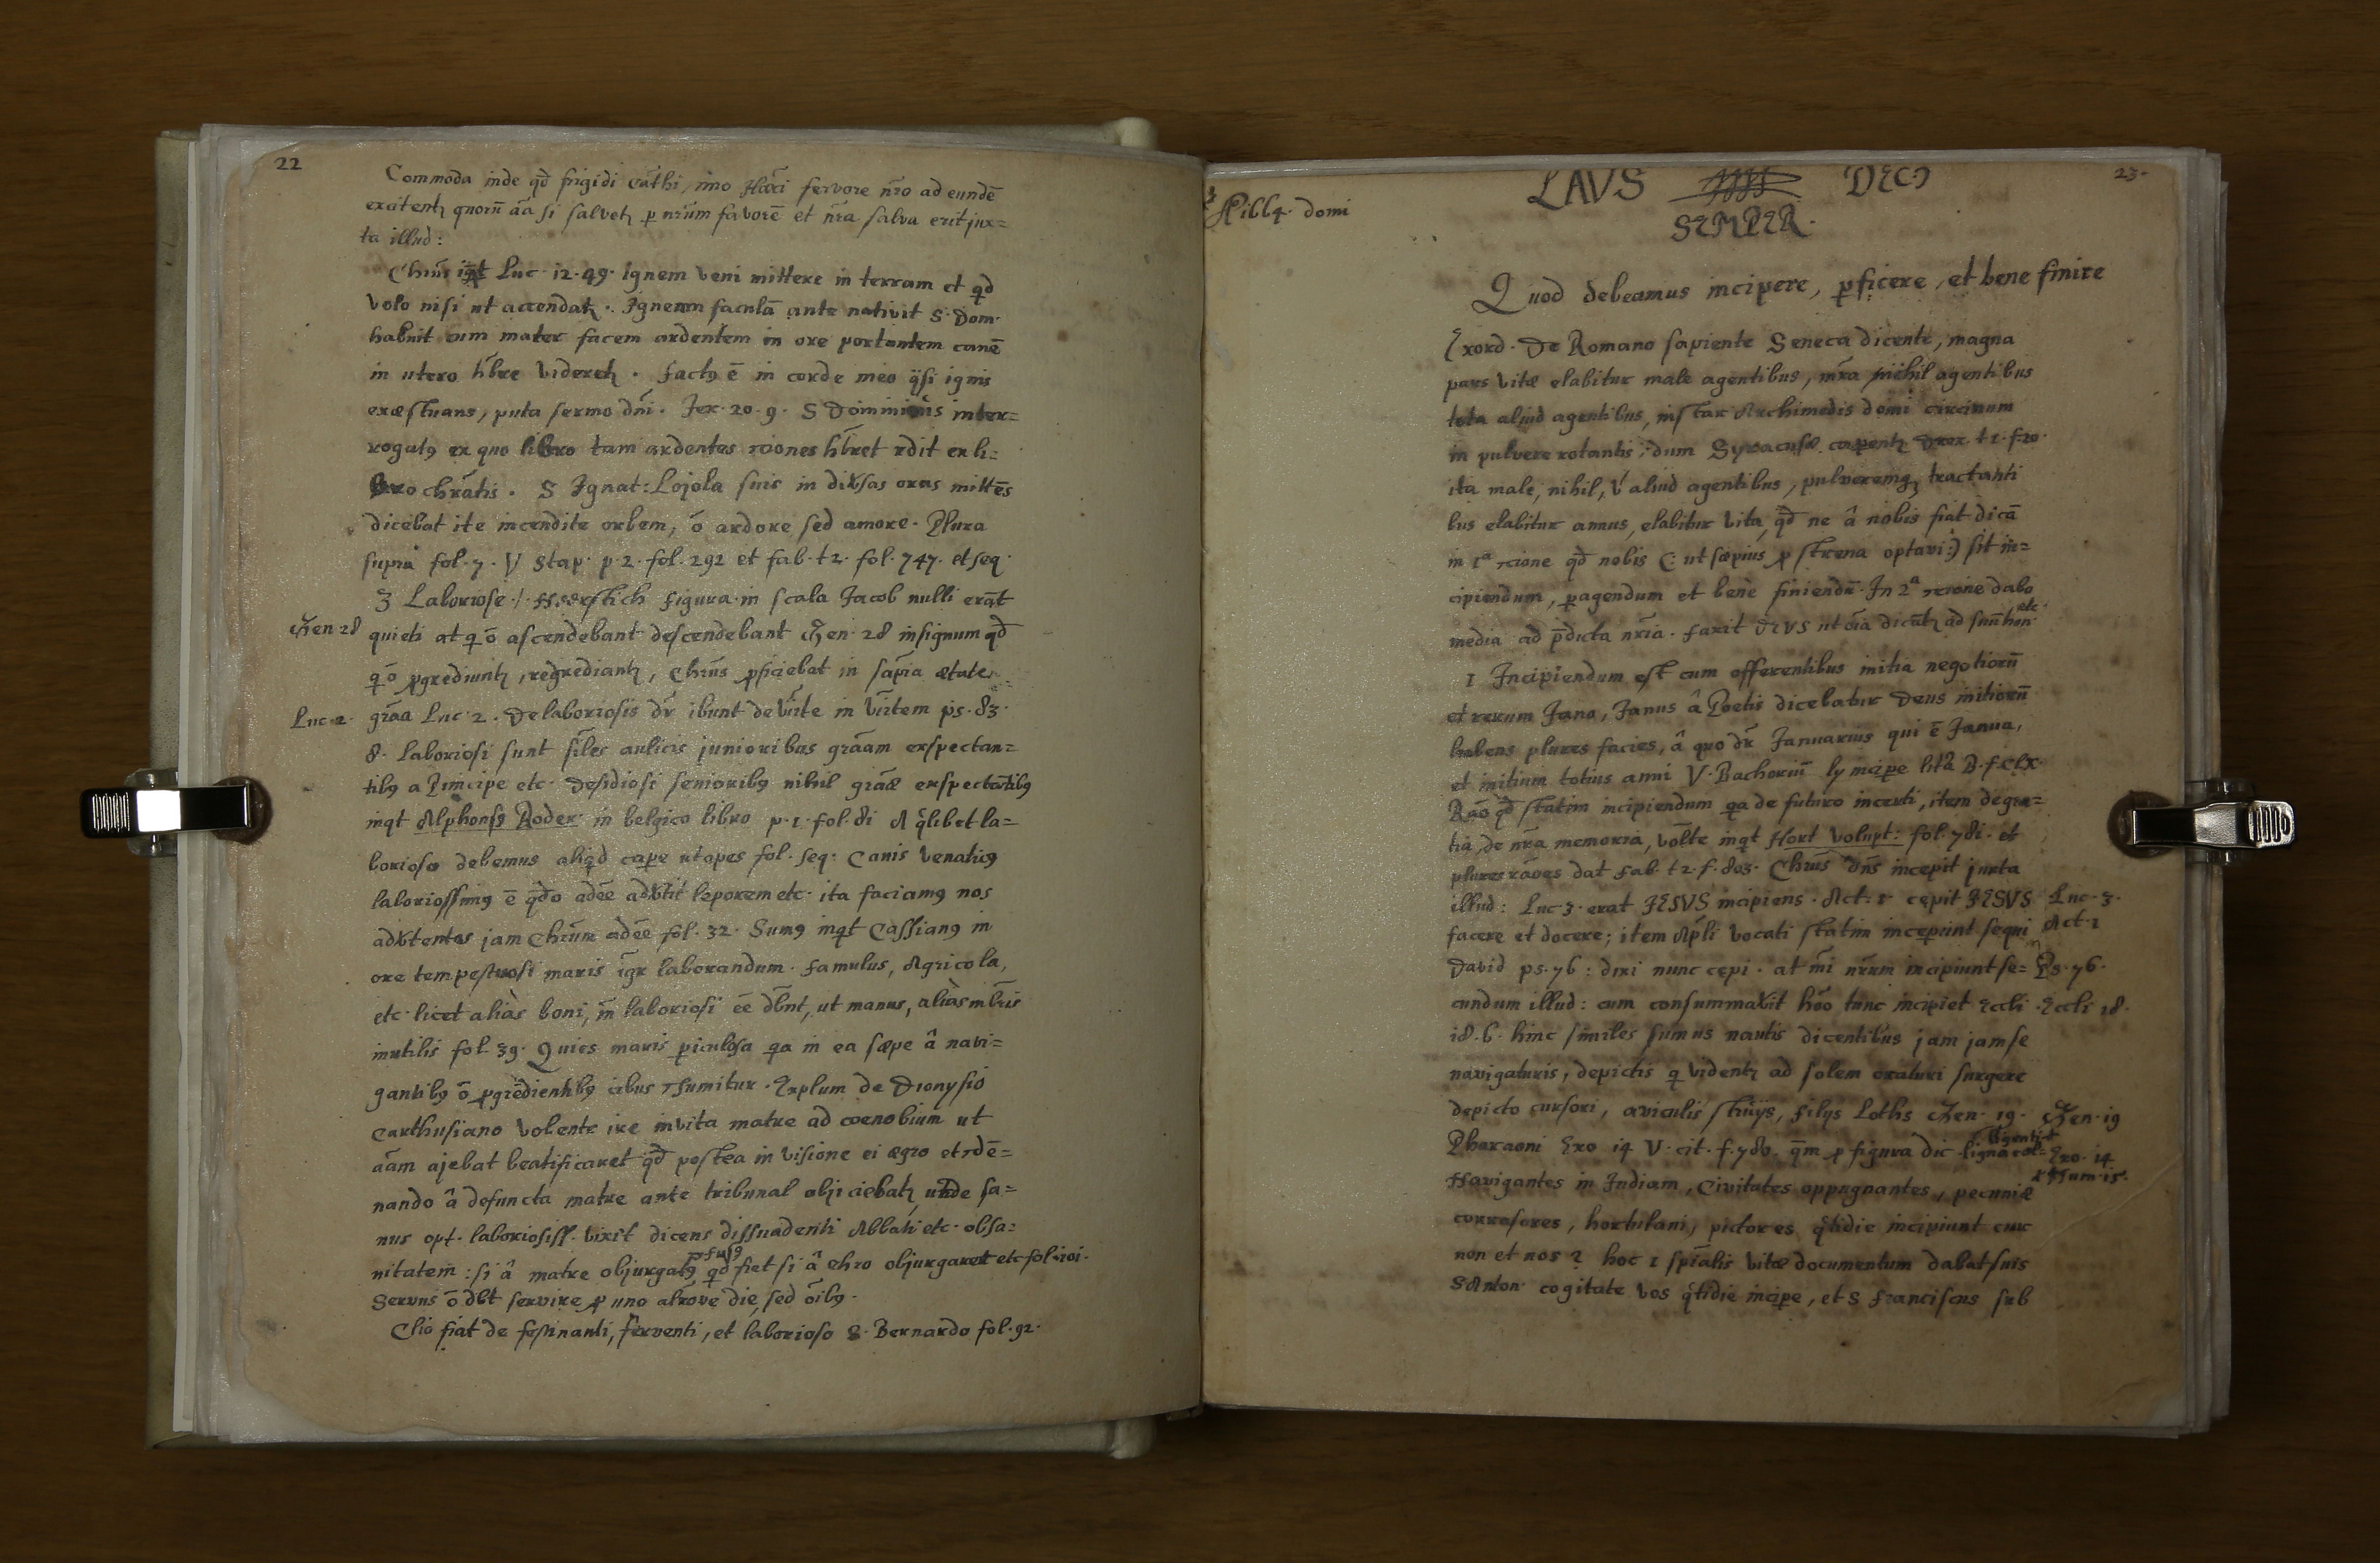 22
Commoda inde qđ frigidi cāthi, imo Hœci fervore nr̄o ad eundē
excitent quorū aā si salvet p nr̄um favorē et nr̄a salva erit jux=
ta illud:
Chrūs Luc. 12. 49. Ignem veni mittere in terram et qđ
volo nisi ut accendat. Ignean faculā ante nativit S. Dom.
habuit cum mater facem ardentem in ore portantem canē
in utero videret. factꝰ ē in corde meo q̈si ignis
exæstuans, puta sermo dn̄i. Jer. 20. 9. S Dominicus inter=
rogatꝰ ex quo libro tam ardentes rciones hr̄et rdit ex li=
bro chrātis. S Ignat: Lojola suis in divsas oras mittēs
dicebat ite incendite orbem, ō ardore sed amore. Plura
supra fol. 7. V Stap. p. 2. fol. 292 et fab. t 2. fol. 747. et seq.
3 Laboriose ./. figura in scala Jacob nulli erāt
Gen 28
quieti at q ō ascendebant descendebant Gen. 28 in signum qđ
q ō pgrediunt, regrediant, Chrūs pficiebat in sap̄ia ætate
Luc. 2.
grāa Luc. 2. De laboriosis dr̄ ibunt de v̄irte in v̄irtem ps. 83.
8. laboriosi sunt sīles aulicis junioribus grāam exspectan=
tibꝰ a Principe etc. desidiosi senioribꝰ nihil grāæ exspectāntibꝰ
inqt Alphonsꝰ Roder. in belgico libro p. 1. fol. 81 A q̈libet la=
borioso debemus aliqđ cape ut apes fol. seq. Canis venaticꝰ
laboriossimꝰ ē qđo adēē advtit leporem etc. ita faciamꝰ nos
advtentes jam Chrūm adēē fol. 32. Sumꝰ inqt Cassianꝰ in
ore tempestuosi maris iḡr laborandum. famulus, Agricola,
etc. licet alias boni, in̄ laboriosi ēē dbn̄t, ut manus, alias mbr̄is
inutilis fol. 39. Quies maris piculosa qa in ea sæpe â navi=
gantibꝰ ō pgrēdientibꝰ cibus rsumitur. Explum de Dionysio
Carthusiano volente ire invita matre ad coenobium ut
aām ajebat beatificaret qđ postea in visione ei ægro et rdē=
nando â defuncta matre ante tribunal objiciebat, unde sa=
nus opt. laboriosiss. vixit dicens dissuadenti Abbati etc. obsa=
pfusꝰ
nitatem: si â matre objurgatꝰ qđ fiet si â chro objurgaret etc fol. 101.
Servus ō dbt servire p uno altrove die, sed ōibꝰ.
Clio fiat de festinanti, ferventi, et laborioso S. Bernardo fol. 92.
23.
LAVS DEO
SEMPER.
1664. domi
Quod debeamus incipere, pficere, et bene finire
Exord. De Romano sapiente Seneca dicente, magna
pars vitæ elabitur male agentibus, mr̄a nihil agentibus
tota aliud agentibus, instar Archimedis domi circinum
in pulvere rotantis, dum Syracusæ capent Drex. t 1. f. 20.
ita male, nihil, v́ aliud agentibus, pulveremq tractanti
bus elabitur annus, elabitur vita, qđ ne â nobis fiat dicā
in 1ª rcione qđ nobis (: ut sæpius p strena optavi :) sit in=
cipiendum, pagendum et bene finiendū. In 2ª rcione dabo
media ad p̄dicta nr̄ia. faxit DEVS ut oīa dicāt ad suū hon. etc.
1 Incipiendum est cum offerentibus initia negotiorū
et rerum Jano, Janus â Poetis dicebatur Deus initiorū
habens plures facies, â quo dr̄ Januarius qui ē Janua,
et initium totius anni V. Bachoriū ly incipe litâ B. f. clx.
Raō qđ statim incipiendum qa de futuro incerti, item de gra=
tia, de nr̄a memoria, volte inqt Hort volupt: fol. 781. et
plures rāoes dat fab. t 2. f. 803. Chrūs dn̄s incepit juxta
illud: Luc. 3. erat JESVS incipiens. Act. 1. cępit JESVS
Luc. 3.
facere et docere; item Apli vocati statim inceperunt sequi
Act. 1
David ps. 76: dixi nunc cępi. at m̄i nr̄um incipiunt se=
Ps. 76.
cundum illud: cum consummavit hōo tunc incipiet Eccli.
Eccli 18.
18. 6. hinc similes sumus nautis dicentibus jam jam se
navigaturis, depictis q vident ad solem oraturi surgere
depicto cursori, aviculis, filys Loths Gen. 19.
Gen. 19
Pharaoni Exo 14 V. cit. f. 786. q̄m p figura dic. ligna col=
ligenti
Exo. 14
Num. 15.
Navigantes in Indiam, Civitates oppugnantes, pecuniæ
corrasores, hortulani, pictores q̈tidie incipiunt cur
non et nos? hoc 1 spīalis vitæ documentum dabat suis
S Anton. cogitate vos q̈tidie incipe, et S Franciscus sub